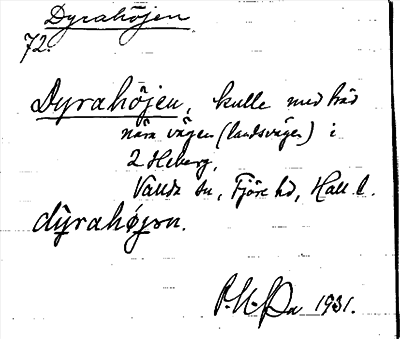 Dyrahöjen
72.
Dyrahöjen, kulle med träd
nära vägen (landsvägen) i
2 Heberg,
Vands sn, Fjäre hd, Hall. l.
dỳrahøjən.
1931.